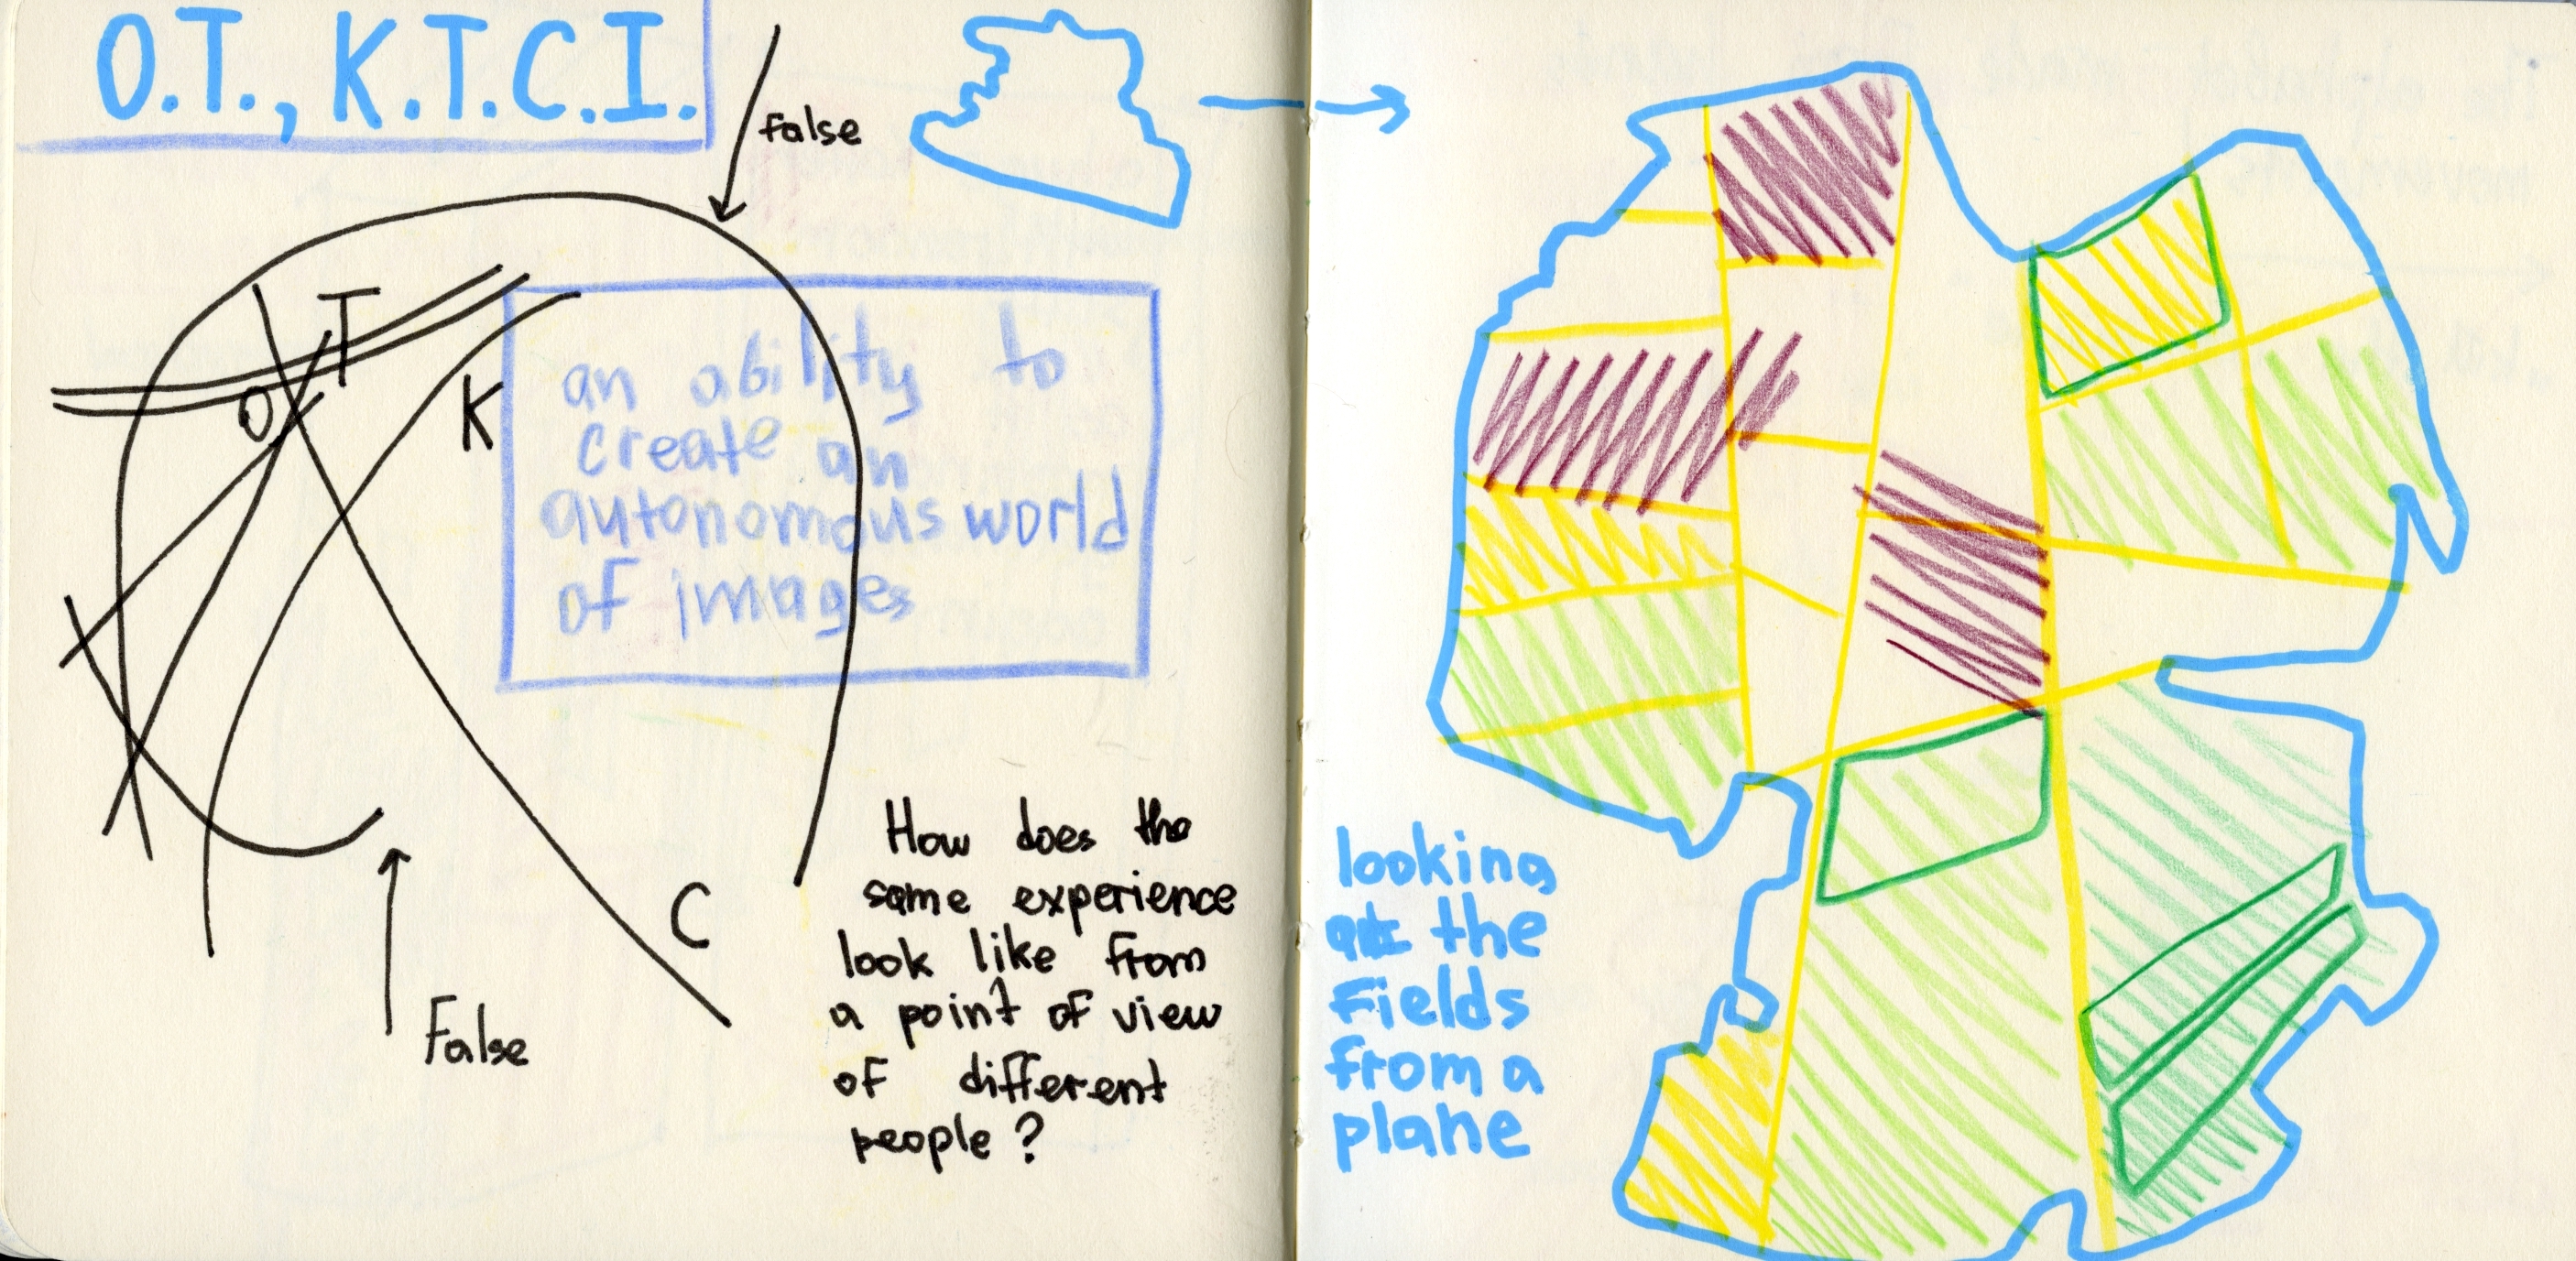 O.T., K.T.C.I.
false
T
O
K
an ability to
create an
autonomous world
of images
How does the
same experience
look like from
a point of view
of different
people?
C
False
looking
at the
Fields
from a
plane